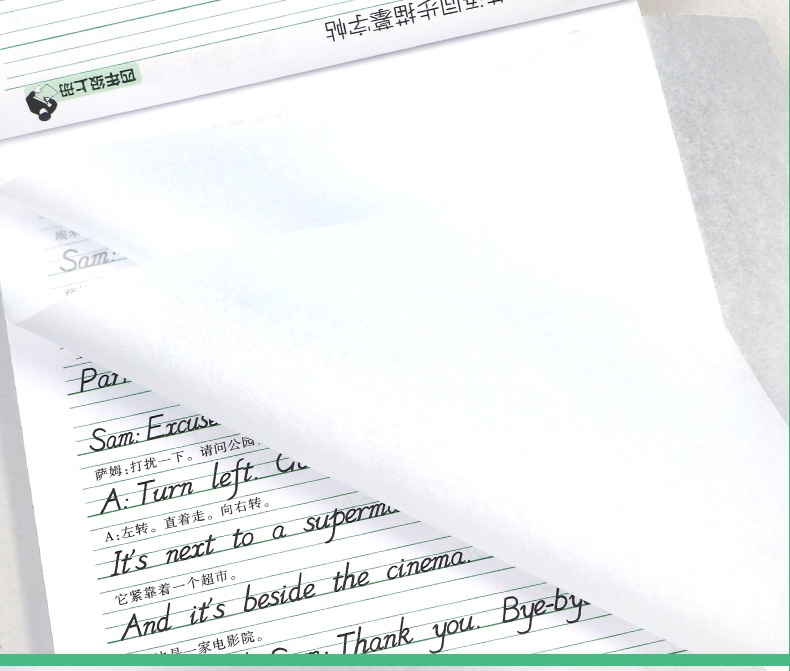 语同步描摹字帖
四年级上册
Sam:
Par
Sam: Excuse
萨姆:打扰一下。请问公园
A: Turn left. Go
A:左转。直着走。向右转。
It's next to a superma
它紧靠着一个超市。
And it's beside the cinema.
是一家电影院。
Thank you. Bye-by